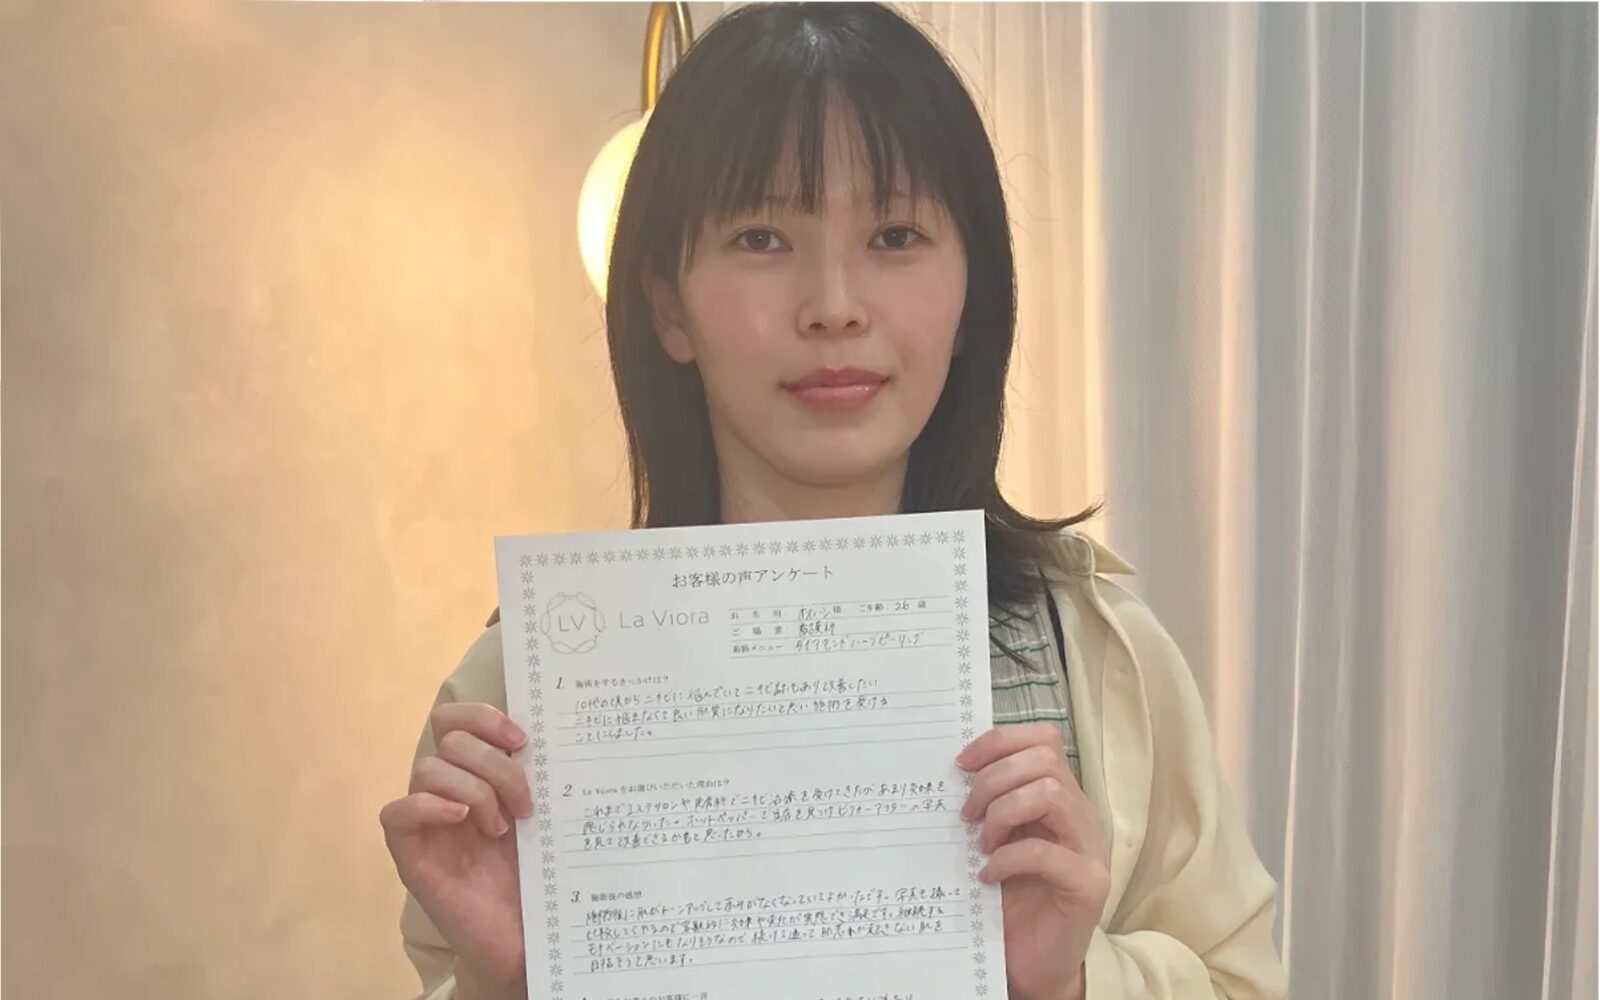 お客様の声アンケート
LV La Viora
お名前 様 ご年齢 26歳
ご職業 看護師
施術メニュー ダイヤモンドハーブピーリング
1. 施術をするきっかけは?
10代の頃からニキビに悩んでいてニキビ跡もあり改善したい
ニキビに悩まなくて良い肌質になりたいと思い施術を受ける
ことにしました。
2. La Vioraをお選びいただいた理由は?
これまでエステサロンや皮膚科でニキビ治療を受けてきたがあまり効果を
感じられなかった。ホットペッパーで当店を見つけビフォーアフターの写真
を見て改善できるかもと思ったから。
3. 施術後の感想
施術後に肌がトーンアップして赤みがなくなっていてよかったです。写真も撮って
比較してくれるので客観的に効果や変化が実感でき満足です。継続する
モチベーションにもなりそうなので続けて通って肌荒れが起きない肌を
目指そうと思います。